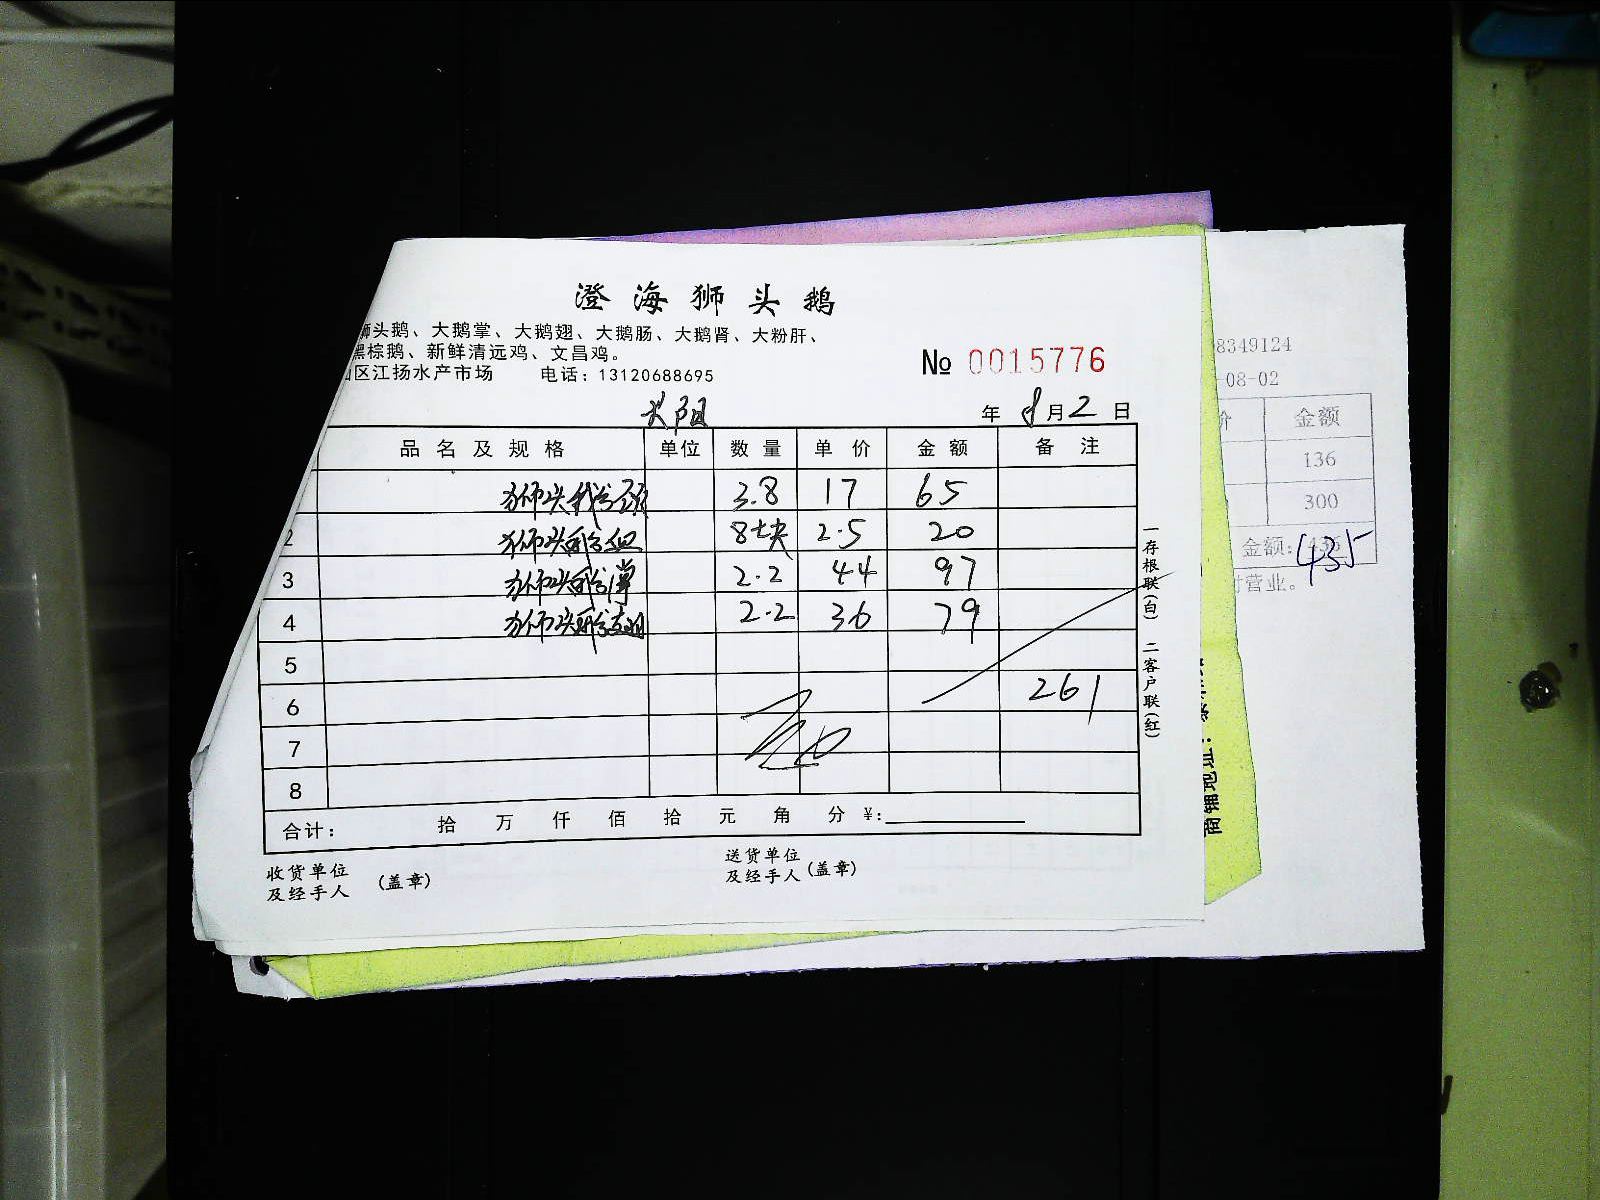 澄海狮头鹅
狮头鹅、大鹅掌、大鹅翅、大鹅肠、大鹅肾、大粉肝、
黑棕鹅、新鲜清远鸡、文昌鸡。
区江扬水产市场 电话：13120688695
№ 0015776
年 8月2日
品名及规格 单位 数量 单价 金额 备注
狮头鹅 3.8 17 65
2 狮头鹅血 8块 2.5 20
3 狮头鹅掌 2.2 44 97
4 狮头鹅翅 2.2 36 79
5
6 261
7
8
合计： 拾 万 仟 佰 拾 元 角 分 ¥：
收货单位 送货单位
及经手人 （盖章） 及经手人（盖章）
一存根联（白） 二客户联（红）
8349124
-08-02
价 金额
136
300
金额：436
435
时营业。
商铺地址：